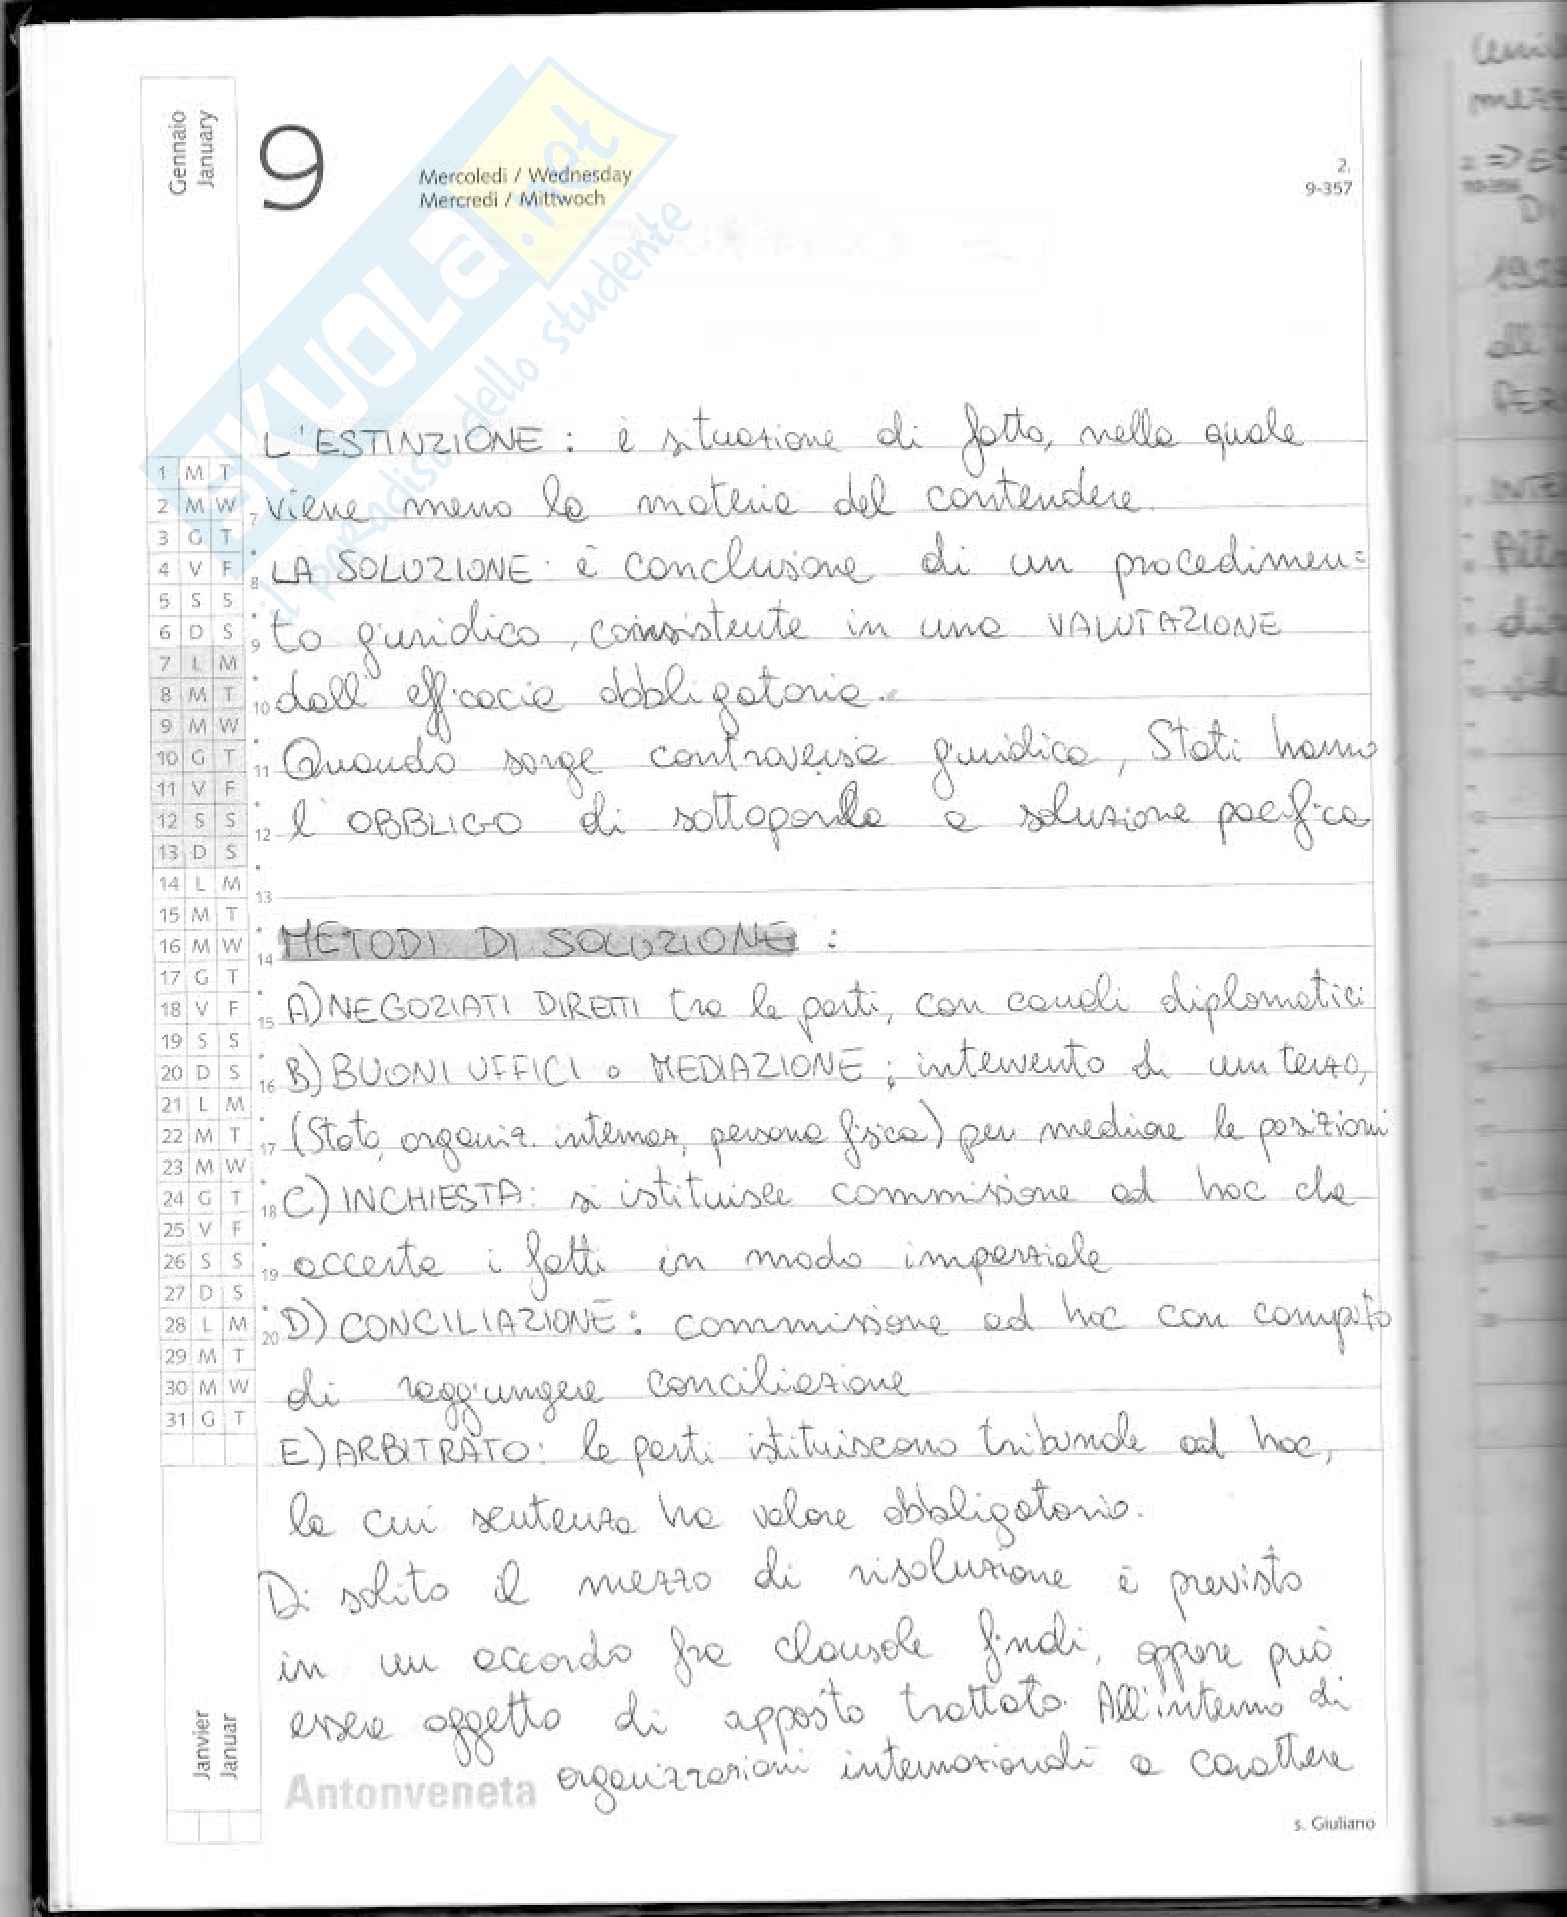 Gennaio
January
9
Mercoledì / Wednesday
Mercredi / Mittwoch
2.
9-357
SKUOLA.net
il paradiso dello studente
L'ESTINZIONE : è situazione di fatto, nella quale
viene meno la materia del contendere.
LA SOLUZIONE : è conclusione di un procedimen=
to giuridico, consistente in una VALUTAZIONE
dall'efficacia obbligatoria.
Quando sorge controversia giuridica, Stati hanno
l'OBBLIGO di sottoporla a soluzione pacifica
METODI DI SOLUZIONE :
A) NEGOZIATI DIRETTI tra le parti, con canali diplomatici
B) BUONI UFFICI o MEDIAZIONE ; intervento di un terzo,
(Stato, organiz. internaz, persona fisica) per mediare le posizioni
C) INCHIESTA : si istituisce commissione ad hoc che
accerta i fatti in modo imparziale
D) CONCILIAZIONE : commissione ad hoc con compito
di raggiungere conciliazione
E) ARBITRATO : le parti istituiscono tribunale ad hoc,
la cui sentenza ha valore obbligatorio.
Di solito il mezzo di risoluzione è previsto
in un accordo fra clausole finali, oppure può
essere oggetto di apposito trattato. All'interno di
organizzazioni internazionali a carattere
1 M T
2 M W 7
3 G T
4 V F 8
5 S S
6 D S 9
7 L M
8 M T 10
9 M W
10 G T 11
11 V F
12 S S 12
13 D S
14 L M 13
15 M T
16 M W 14
17 G T
18 V F 15
19 S S
20 D S 16
21 L M
22 M T 17
23 M W
24 G T 18
25 V F
26 S S 19
27 D S
28 L M 20
29 M T
30 M W
31 G T
Janvier
Januar
Antonveneta
s. Giuliano